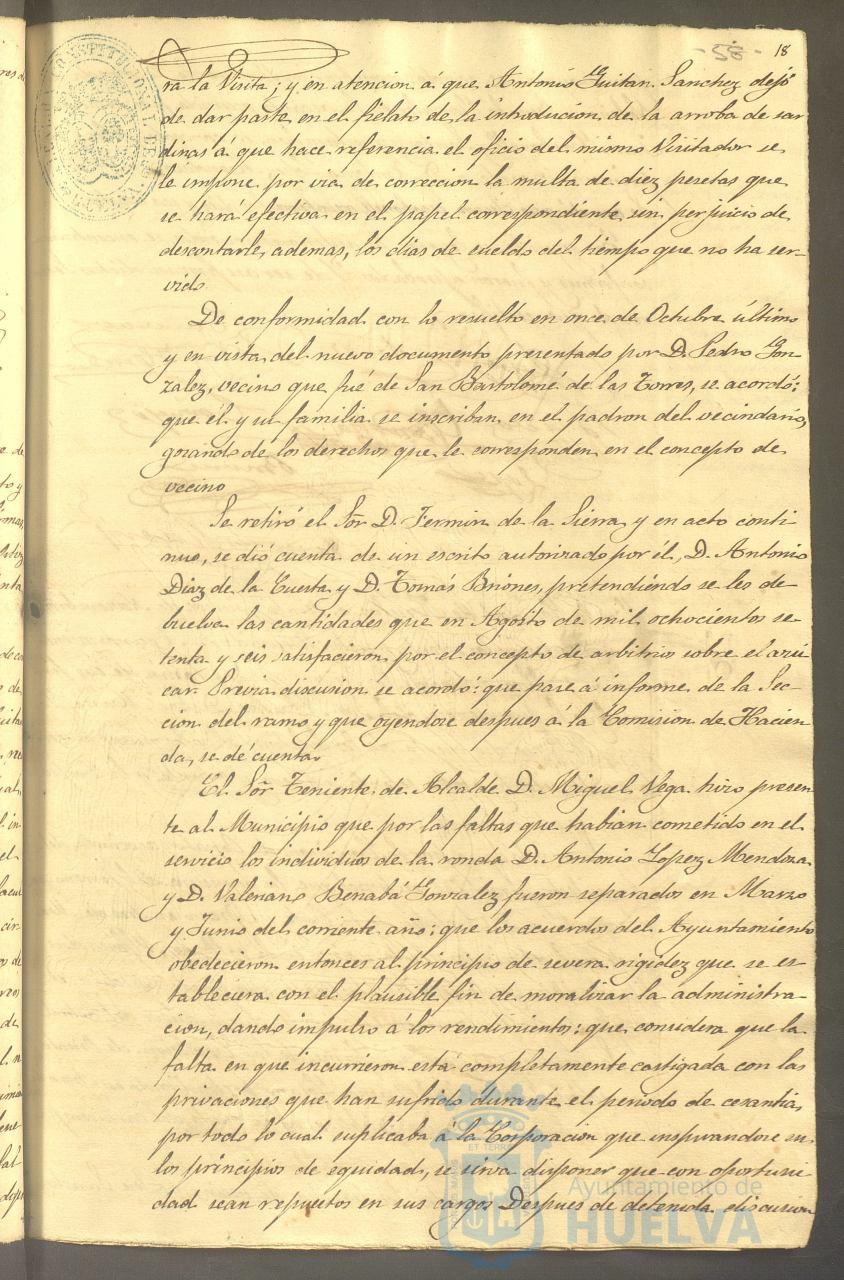 -58- 18
ra la Visita; y en atencion á que Antonio Guitan Sanchez dejó
de dar parte en el fielato de la introducion de la arroba de sar
dinas á que hace referencia el oficio del mismo Visitador se
le impone por via de correccion la multa de diez pesetas que
se hará efectiva en el papel correspondiente sin perjuicio de
descontarle, ademas, los dias de sueldo del tiempo que no ha ser-
vido
De conformidad con lo resuelto en once de Octubre último
y en vista del nuevo documento presentado por D. Pedro Gon-
zalez, vecino que fué de San Bartolomé de las Torres, se acordó:
que él y su familia se inscriban en el padron del vecindario,
gozando de los derechos que le corresponden en el concepto de
vecino
Se retiró el Sor D. Fermin de la Sierra y en acto conti-
nuo, se dió cuenta de un escrito autorizado por él, D. Antonio
Diaz de la Cuesta y D. Tomás Briones, pretendiéndo se les de-
buelva las cantidades que en Agosto de mil ochocientos se-
tenta y seis satisfacieron por el concepto de arbitrios sobre el azú
car. Previa discusion se acordó: que pase á informe de la Sec-
cion del ramo y que oyendose despues á la Comision de Hacien-
da, se dé cuenta
El Sor Teniente de Alcalde D. Miguel Vega hizo presen
te al Municipio que por las faltas que habian cometido en el
servicio los individuos de la ronda D. Antonio Lopez Mendoza
y D. Valeriano Benabá Gonzalez fueron separados en Marzo
y Junio del corriente año: que los acuerdos del Ayuntamiento
obedecieron entonces al principio de severa rigidez que se es
tableciera con el plausible fin de moralizar la administra-
cion, dando impulso á los rendimientos: que considera que la
falta en que incurrieron está completamente castigada con las
privaciones que han sufrido durante el periodo de cesantia,
por todo lo cual suplicaba á la Corporacion que inspirandose en
los principios de equidad, se sirva disponer que con oportuni-
dad sean repuestos en sus cargos Despues de detenida discusion
Ayuntamiento de
HUELVA